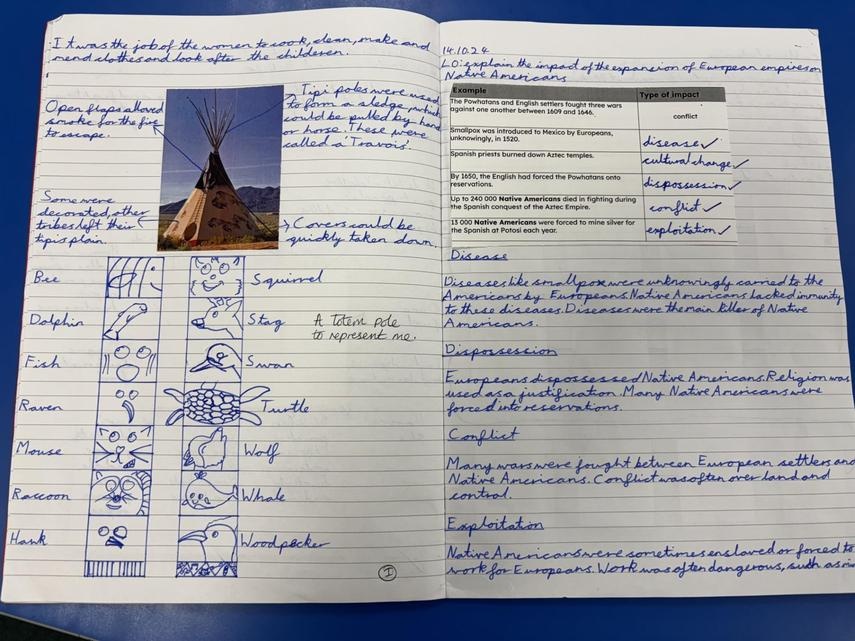 It was the job of the women to cook, clean, make and
mend clothes and look after the childeren.
Open flaps allowed
smoke for the fire
to escape.
Tipi poles were used
to form a sledge, which
could be pulled by hand
or horse. These were
called a 'Travois'.
Some were
decorated, other
tribes left their
tipis plain.
Covers could be
quickly taken down.
Bee
Squirrel
Dolphin
Stag
A totem pole
to represent me.
Fish
Swan
Raven
Turtle
Mouse
Wolf
Raccoon
Whale
Hank
Woodpecker
I
14.10.24
LO: explain the impact of the expansion of European empires on
Native Americans
Example
Type of impact
The Powhatans and English settlers fought three wars
against one another between 1609 and 1646.
conflict
Smallpox was introduced to Mexico by Europeans,
unknowingly, in 1520.
disease
Spanish priests burned down Aztec temples.
cultural change
By 1650, the English had forced the Powhatans onto
reservations.
dispossession
Up to 240 000 Native Americans died in fighting during
the Spanish conquest of the Aztec Empire.
conflict
13 000 Native Americans were forced to mine silver for
the Spanish at Potosí each year.
exploitation
Disease
Diseases like smallpox were unknowingly carried to the
Americans by Europeans. Native Americans lacked immunity
to these diseases. Diseases were the main killer of Native
Americans.
Dispossession
Europeans dispossessed Native Americans. Religion was
used as a justification. Many Native Americans were
forced into reservations.
Conflict
Many wars were fought between European settlers and
Native Americans. Conflict was often over land and
control.
Exploitation
Native Americans were sometimes enslaved or forced to
work for Europeans. Work was often dangerous, such as